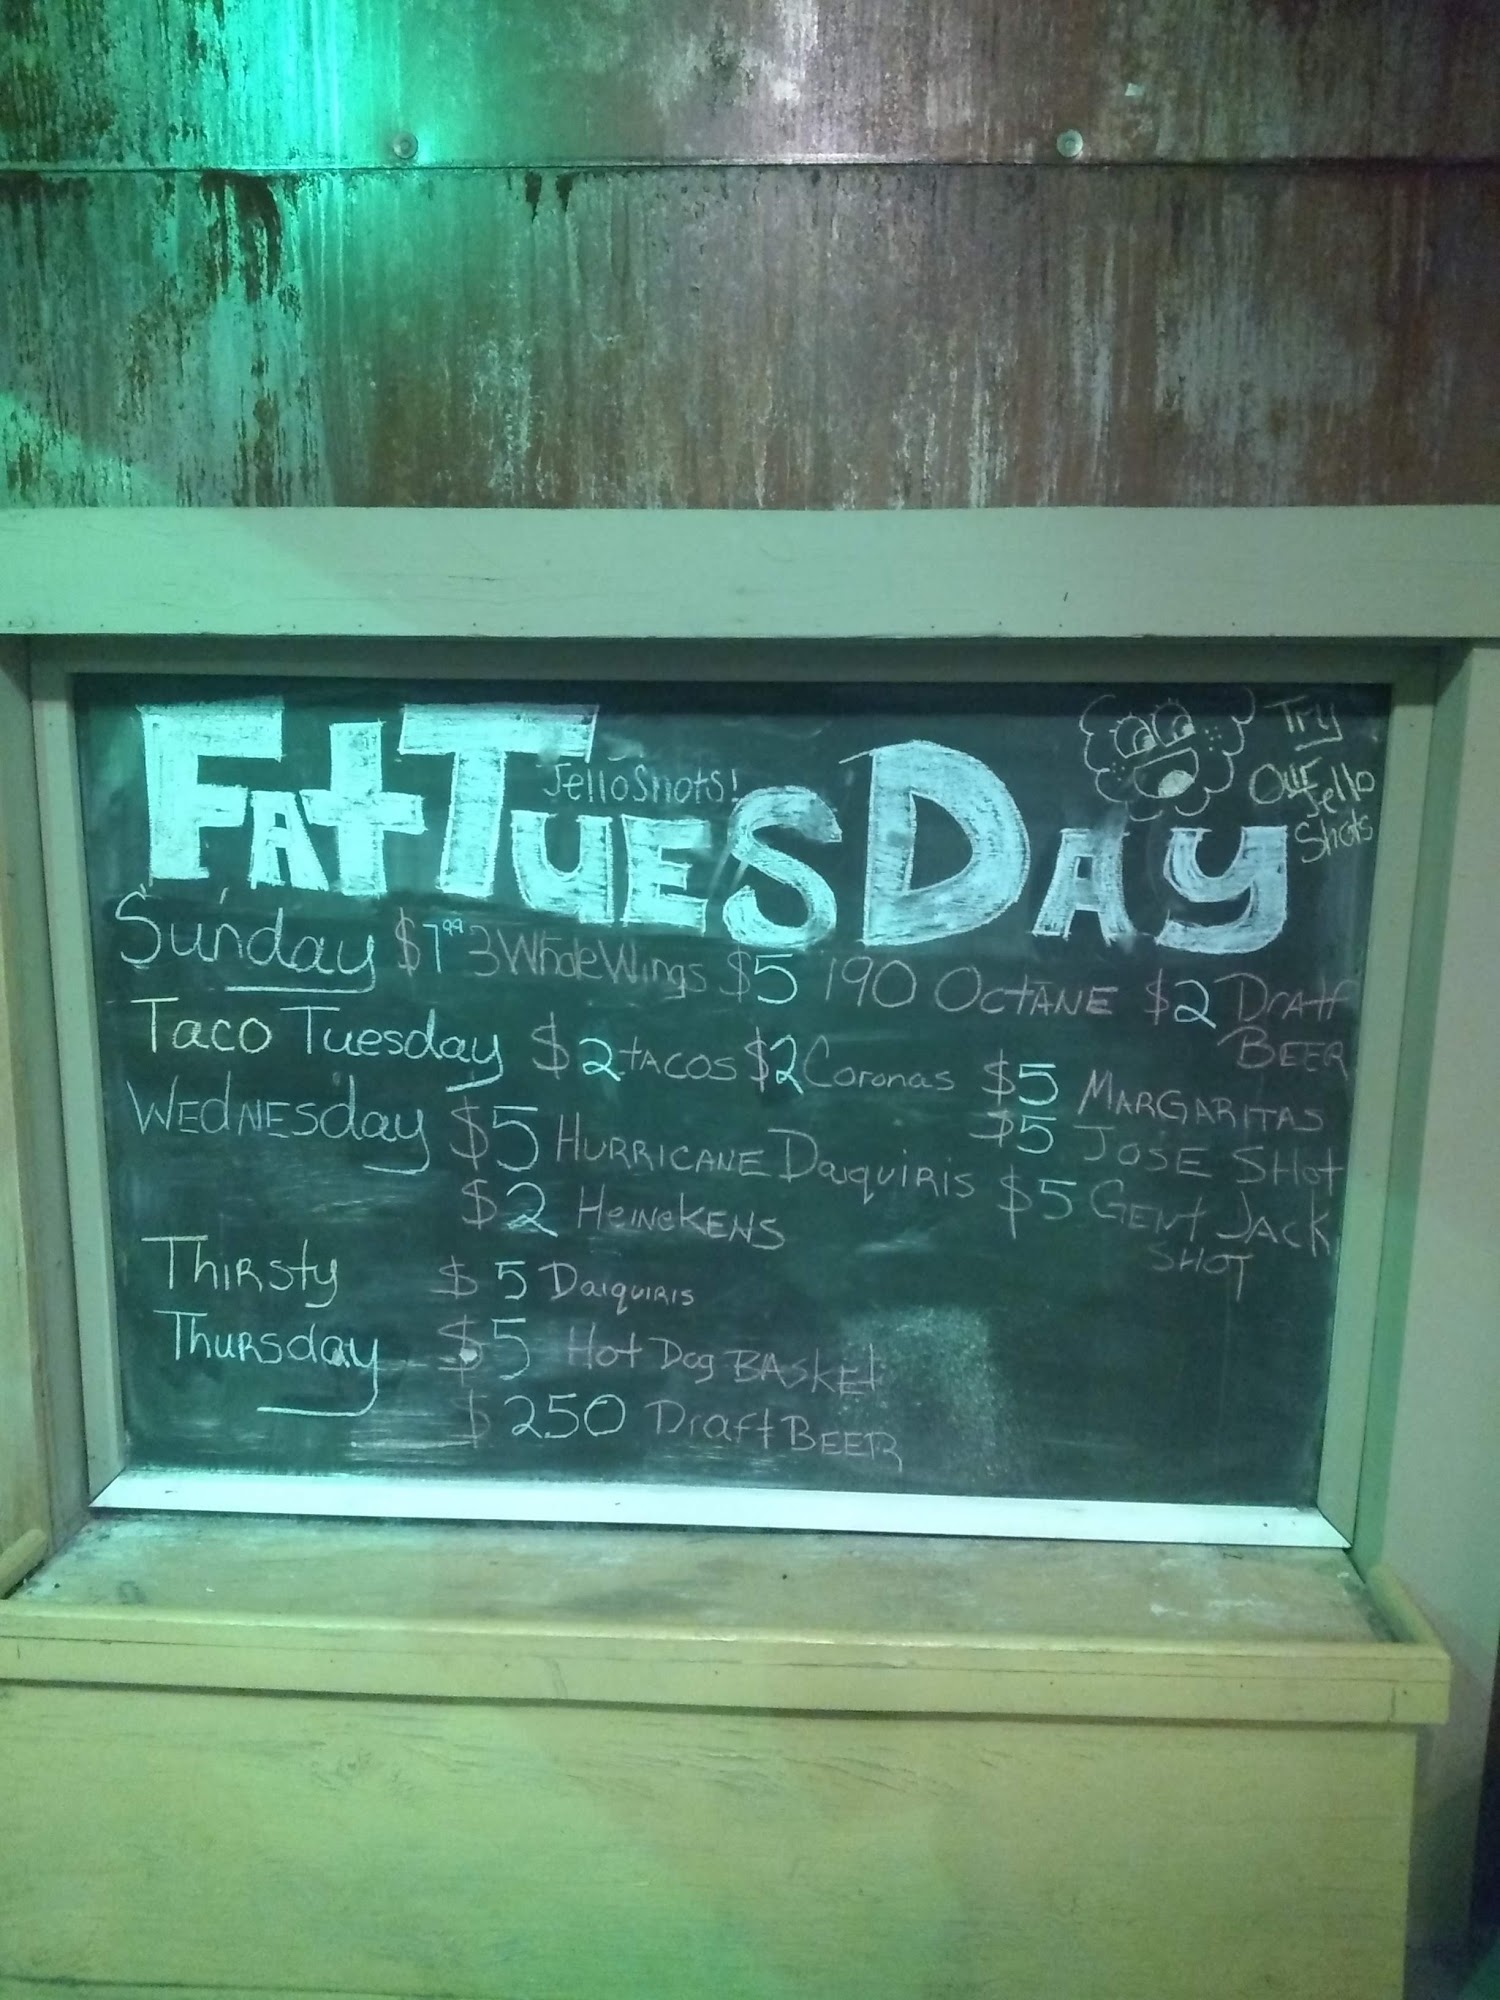 Fat Tuesday
Jello Shots!
Try
Our
Jello
Shots
Sunday $7.99 3 Whole Wings $5 190 Octane $2 Draft
Beer
Taco Tuesday $2 tacos $2 Coronas $5 Margaritas
$5 Jose Shot
Wednesday $5 Hurricane Daiquiris $5 Gent Jack
Shot
$2 Heinekens
Thirsty $5 Daiquiris
Thursday $5 Hot Dog Basket
$2.50 Draft Beer